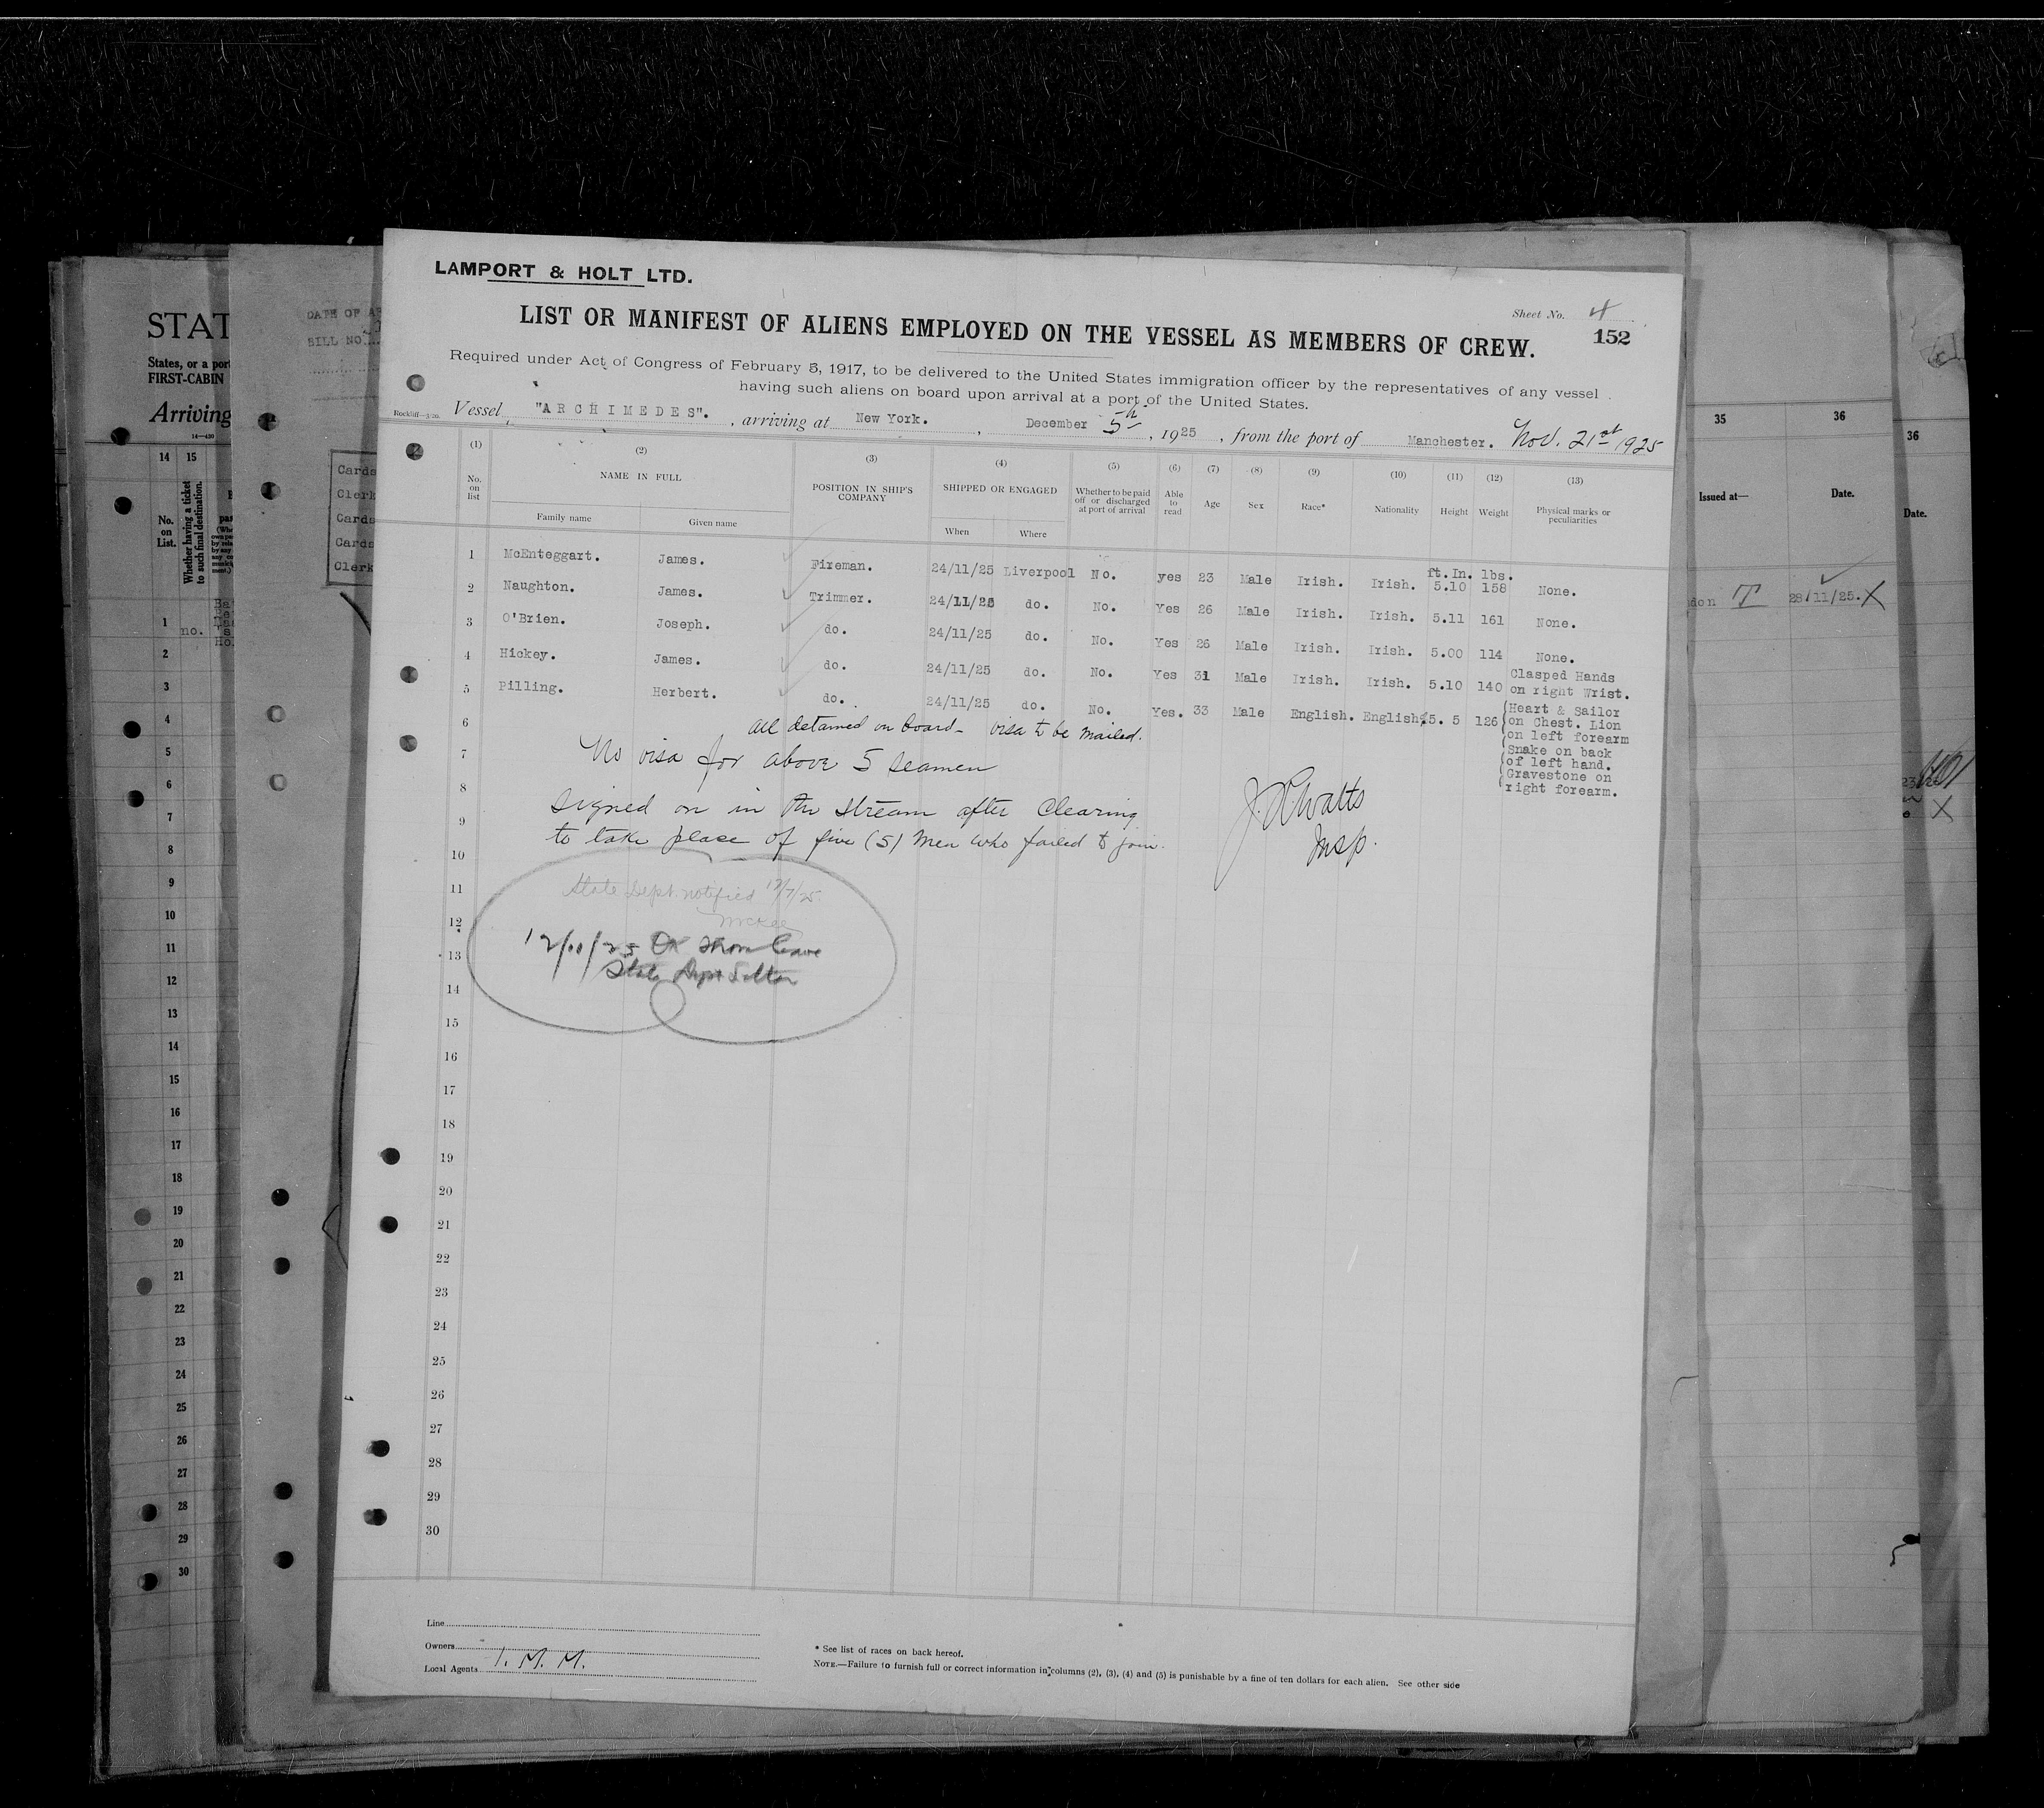 LAMPORT & HOLT LTD.
Sheet No. 4
LIST OR MANIFEST OF ALIENS EMPLOYED ON THE VESSEL AS MEMBERS OF CREW.
152
Required under Act of Congress of February 5, 1917, to be delivered to the United States immigration officer by the representatives of any vessel
having such aliens on board upon arrival at a port of the United States.
Vessel "ARCHIMEDES". , arriving at New York. , December 5th , 1925 , from the port of Manchester. Nov. 21st 1925
(1) (2) (3) (4) (5) (6) (7) (8) (9) (10) (11) (12) (13)
No. on list NAME IN FULL POSITION IN SHIP'S COMPANY SHIPPED OR ENGAGED Whether to be paid off or discharged at port of arrival Able to read Age Sex Race* Nationality Height Weight Physical marks or peculiarities
Family name Given name When Where
ft.In. lbs.
1 McEnteggart. James. Fireman. 24/11/25 Liverpool No. yes 23 Male Irish. Irish. 5.10 158 None.
2 Naughton. James. Trimmer. 24/11/25 do. No. Yes 26 Male Irish. Irish. 5.11 161 None.
3 O'Brien. Joseph. do. 24/11/25 do. No. Yes 26 Male Irish. Irish. 5.00 114 None.
4 Hickey. James. do. 24/11/25 do. No. Yes 31 Male Irish. Irish. 5.10 140 Clasped Hands on right Wrist.
5 Pilling. Herbert. do. 24/11/25 do. No. Yes. 33 Male English. English. 5. 5 126 Heart & Sailor
on Chest. Lion
on left forearm
Snake on back
of left hand.
Gravestone on
right forearm.
6 All detained on board - visa to be mailed.
7 No visa for above 5 seamen
8
signed on in the stream after clearing
9
to take place of five (5) men who failed to join.
J. Watts
Insp.
10
11 State Dept. notified 12/7/25.
12 McKee
13 12/10/25 OK shore leave
State Dept
14
15
16
17
18
19
20
21
22
23
24
25
26
27
28
29
30
Line
Owners
Local Agents I. M. M.
* See list of races on back hereof.
NOTE.—Failure to furnish full or correct information in columns (2), (3), (4) and (5) is punishable by a fine of ten dollars for each alien. See other side
STAT
States, or a port
FIRST-CABIN
Arriving
14 15
No. on List.
Whether having a ticket to such final destination.
1 no.
2
3
4
5
6
7
8
9
10
11
12
13
14
15
16
17
18
19
20
21
22
23
24
25
26
27
28
29
30
DATE OF
BILL NO.
Cards
Clerk
Cards
Cards
Clerk
35 36
Issued at— Date.
28/11/25. X
36
Date.